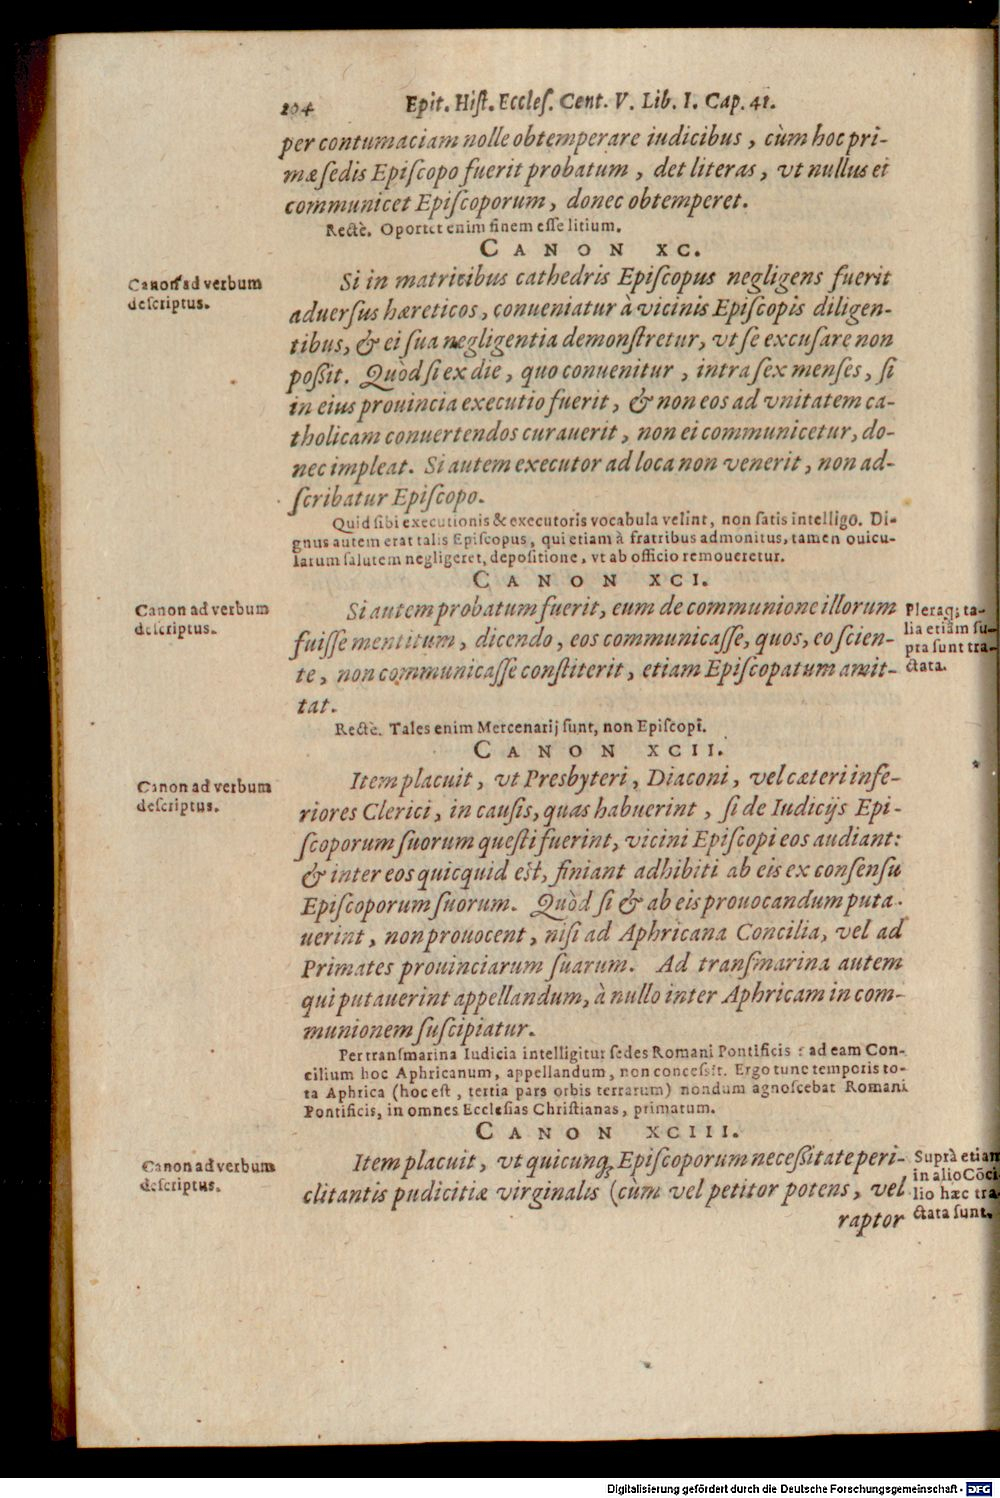 204 Epit. Hiſt. Eccleſ. Cent. V. Lib. I. Cap. 41.
per contumaciam nolle obtemperare iudicibus, cùm hoc pri-
mæ ſedis Epiſcopo fuerit probatum, det literas, vt nullus ei
communicet Epiſcoporum, donec obtemperet.
Rectè. Oportet enim finem eſſe litium.
CANON XC.
Canon ad verbum
deſcriptus.
Si in matricibus cathedris Epiſcopus negligens fuerit
aduerſus hæreticos, conueniatur à vicinis Epiſcopis diligen-
tibus, & ei ſua negligentia demonſtretur, vt ſe excuſare non
poßit. Quòd ſi ex die, quo conuenitur, intra ſex menſes, ſi
in eius prouincia executio fuerit, & non eos ad vnitatem ca-
tholicam conuertendos curauerit, non ei communicetur, do-
nec impleat. Si autem executor ad loca non venerit, non ad-
ſcribatur Epiſcopo.
Quid ſibi executionis & executoris vocabula velint, non ſatis intelligo. Di-
gnus autem erat talis Epiſcopus, qui etiam à fratribus admonitus, tamen ouicu-
larum ſalutem negligeret, depoſitione, vt ab officio remoueretur.
CANON XCI.
Canon ad verbum
deſcriptus.
Si autem probatum fuerit, eum de communione illorum
fuiſſe mentitum, dicendo, eos communicaſſe, quos, eo ſcien-
te, non communicaſſe conſtiterit, etiam Epiſcopatum amit-
tat.
Pleraq; ta-
lia etiam ſu-
pra ſunt tra-
ctata.
Rectè. Tales enim Mercenarij ſunt, non Epiſcopi.
CANON XCII.
Canon ad verbum
deſcriptus.
Item placuit, vt Presbyteri, Diaconi, vel cæteri infe-
riores Clerici, in cauſis, quas habuerint, ſi de Iudicijs Epi-
ſcoporum ſuorum queſti fuerint, vicini Epiſcopi eos audiant:
& inter eos quicquid eſt, finiant adhibiti ab eis ex conſenſu
Epiſcoporum ſuorum. Quòd ſi & ab eis prouocandum puta-
uerint, non prouocent, niſi ad Aphricana Concilia, vel ad
Primates prouinciarum ſuarum. Ad tranſmarina autem
qui putauerint appellandum, à nullo inter Aphricam in com-
munionem ſuſcipiatur.
Per tranſmarina Iudicia intelligitur ſedes Romani Pontificis: ad eam Con-
cilium hoc Aphricanum, appellandum, non conceſſit. Ergo tunc temporis to-
ta Aphrica (hoc eſt, tertia pars orbis terrarum) nondum agnoſcebat Romani
Pontificis, in omnes Eccleſias Chriſtianas, primatum.
CANON XCIII.
Canon ad verbum
deſcriptus.
Item placuit, vt quicunq; Epiſcoporum neceßitate peri-
clitantis pudicitiæ virginalis (cùm vel petitor potens, vel
raptor
Suprà etiam
in alio Cōci
lio hæc tra-
ctata ſunt.
Digitalisierung gefördert durch die Deutsche Forschungsgemeinschaft - DFG